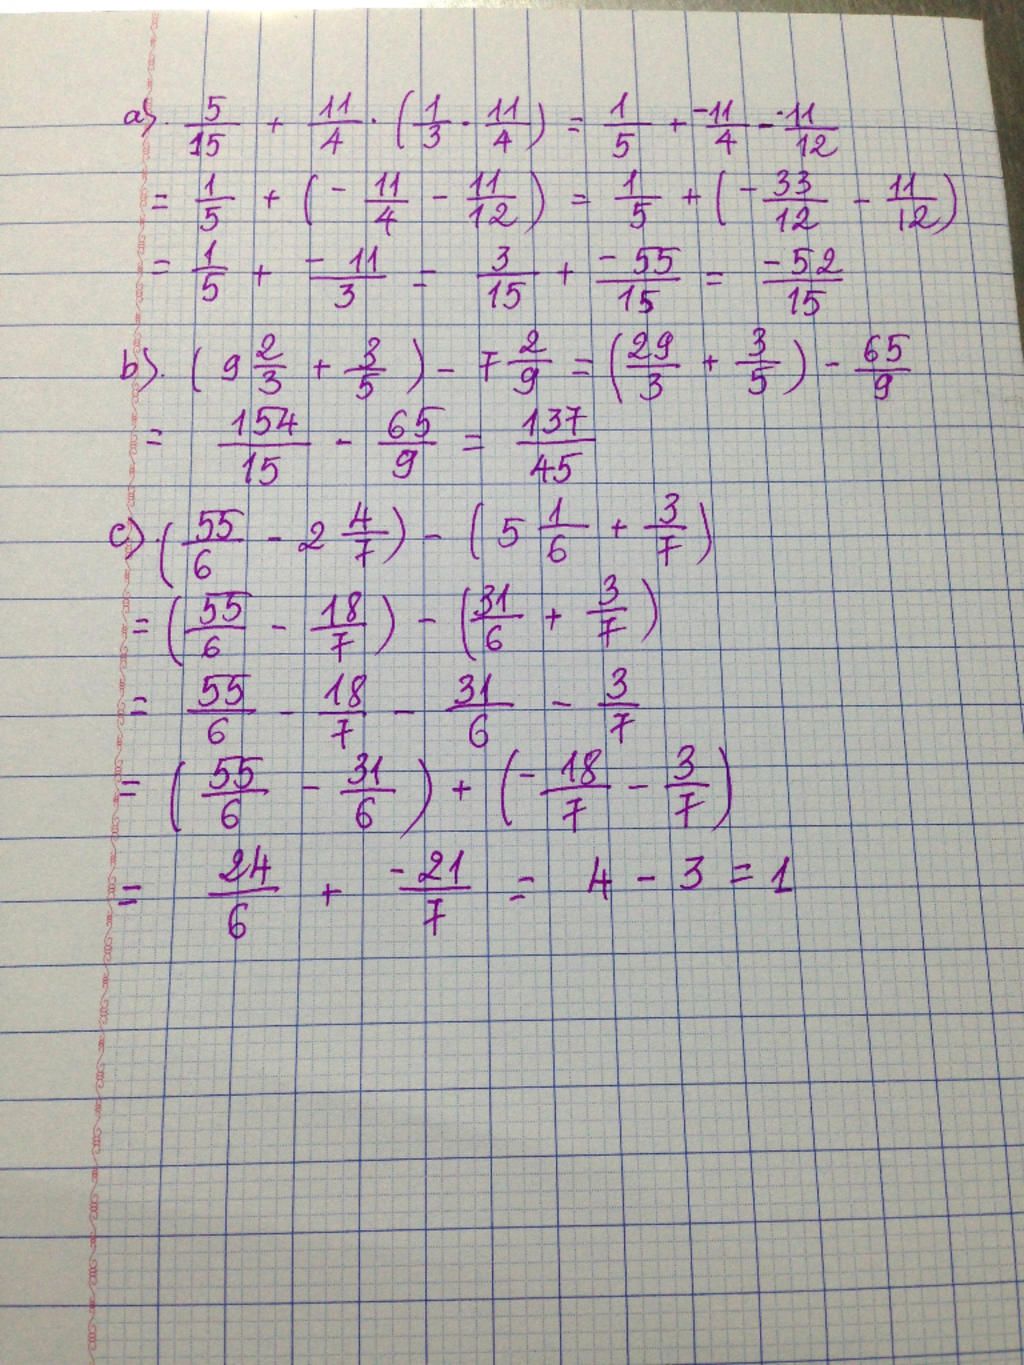 a). 5/15 + 11/4 · (1/3 · 11/4) = 1/5 + -11/4 - ·11/12
= 1/5 + (- 11/4 - 11/12) = 1/5 + (- 33/12 - 11/12)
= 1/5 + -11/3 - 3/15 + -55/15 = -52/15
b). (9 2/3 + 3/5) - 7 2/9 = (29/3 + 3/5) - 65/9
= 154/15 - 65/9 = 137/45
c). (55/6 - 2 4/7) - (5 1/6 + 3/7)
= (55/6 - 18/7) - (31/6 + 3/7)
= 55/6 - 18/7 - 31/6 - 3/7
= (55/6 - 31/6) + (- 18/7 - 3/7)
= 24/6 + -21/7 = 4 - 3 = 1